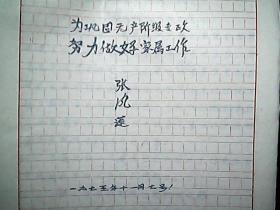 为巩固无产阶级专政
努力做好家属工作
张凤莲
一九七五年十一月七号!